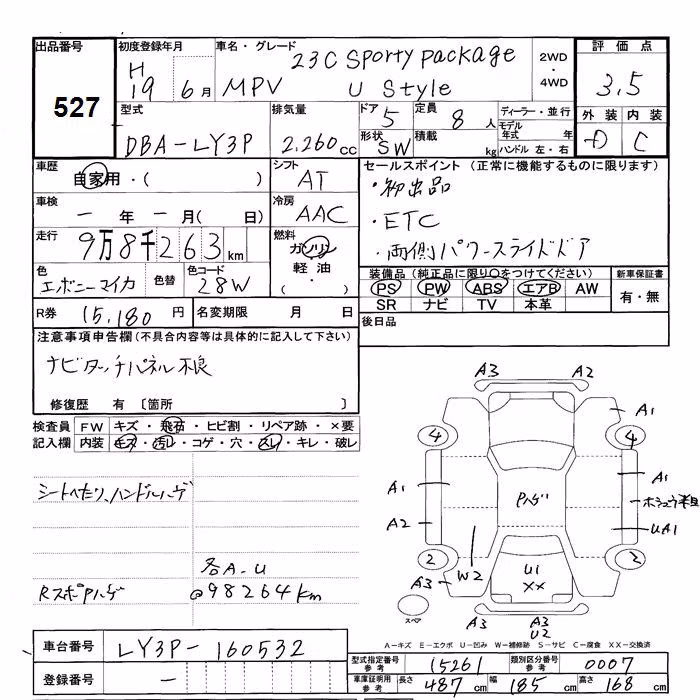 出品番号
527
初度登録年月
H19 6月
車名・グレード
MPV 23C Sporty package
U Style
2WD
・
4WD
評価点
3.5
外装 内装
D C
型式
DBA-LY3P
排気量
2,260cc
ドア 5
形状 SW
定員 8人
積載 kg
ディーラー・並行
モデル年式 年
ハンドル 左・右
車歴
自家用・( )
シフト
AT
車検
ー年ー月( 日)
冷房
AAC
走行
9万8千263km
燃料
ガソリン
軽油
・( )
色
エボニーマイカ
色替
色コード
28W
R券 15,180円
名変期限 月 日
セールスポイント(正常に機能するものに限ります)
・初出品
・ETC
・両側パワースライドドア
装備品(純正品に限り○をつけてください)
新車保証書
PS PW ABS エアB AW
SR ナビ TV 本革
有・無
後日品
注意事項申告欄(不具合内容等は具体的に記入して下さい)
ナビタッチパネル不良
修復歴 有〔箇所 〕
検査員
記入欄
FW キズ・飛石・ヒビ割・リペア跡・×要
内装 キズ・汚レ・コゲ・穴・スレ・キレ・破レ
シートヘたり、ハンドルハゲ
各A-U
Rスポイラハゲ
@98264km
A3 A2
A1
4 4
A1 A1
Pハゲ
A2 UA1
W2
2 2
U1
XX
A3
スペア
A3 A3
U2
A-キズ E-エクボ U-凹み W-補修跡 S-サビ C-腐食 XX-交換済
車台番号
LY3P-160532
登録番号
ー
型式指定番号
参考
15261
類別区分番号
参考
0007
車庫証明用
参考
長さ 487cm 幅 185cm 高さ 168cm